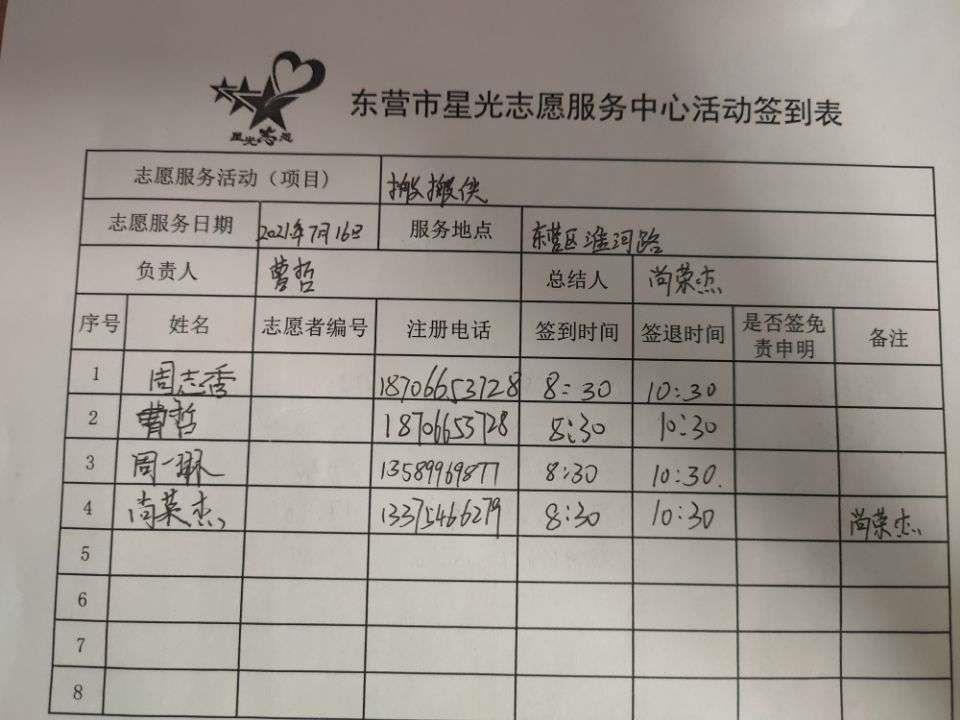 星光志愿
东营市星光志愿服务中心活动签到表
志愿服务活动（项目） 搬搬侠
志愿服务日期 2021年7月16日 服务地点 东营区淮河路
负责人 曹哲 总结人 尚荣杰
序号 姓名 志愿者编号 注册电话 签到时间 签退时间 是否签免责申明 备注
1 周志香 18706653728 8:30 10:30
2 曹哲 18706653728 8:30 10:30
3 周一琳 13589969877 8:30 10:30.
4 尚荣杰 13375466279 8:30 10:30 尚荣杰
5
6
7
8